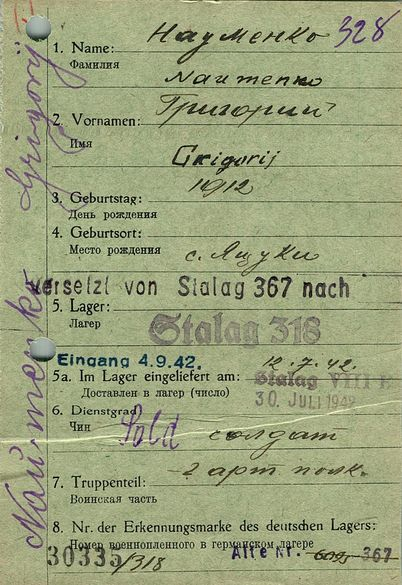 Науменко 328
1. Name:
Фамилия
Naumenko
Григорий
2. Vornamen:
Имя
Grigorij
1912
3. Geburtstag:
День рождения
4. Geburtsort:
Место рождения
с. Яцуки
versetzt von Stalag 367 nach
5. Lager:
Лагерь
Stalag 318
Eingang 4.9.42.
12.7.42.
5a. Im Lager eingeliefert am:
Доставлен в лагер (число)
Stalag VIII E
30. JULI 1942
6. Dienstgrad
Чин
Sold
солдат
2 арт полк.
7. Truppenteil:
Воинская часть
8. Nr. der Erkennungsmarke des deutschen Lagers:
Номер военнопленного в германском лагере
30335/318
Alte Nr. 367
Naumenko Grigorij